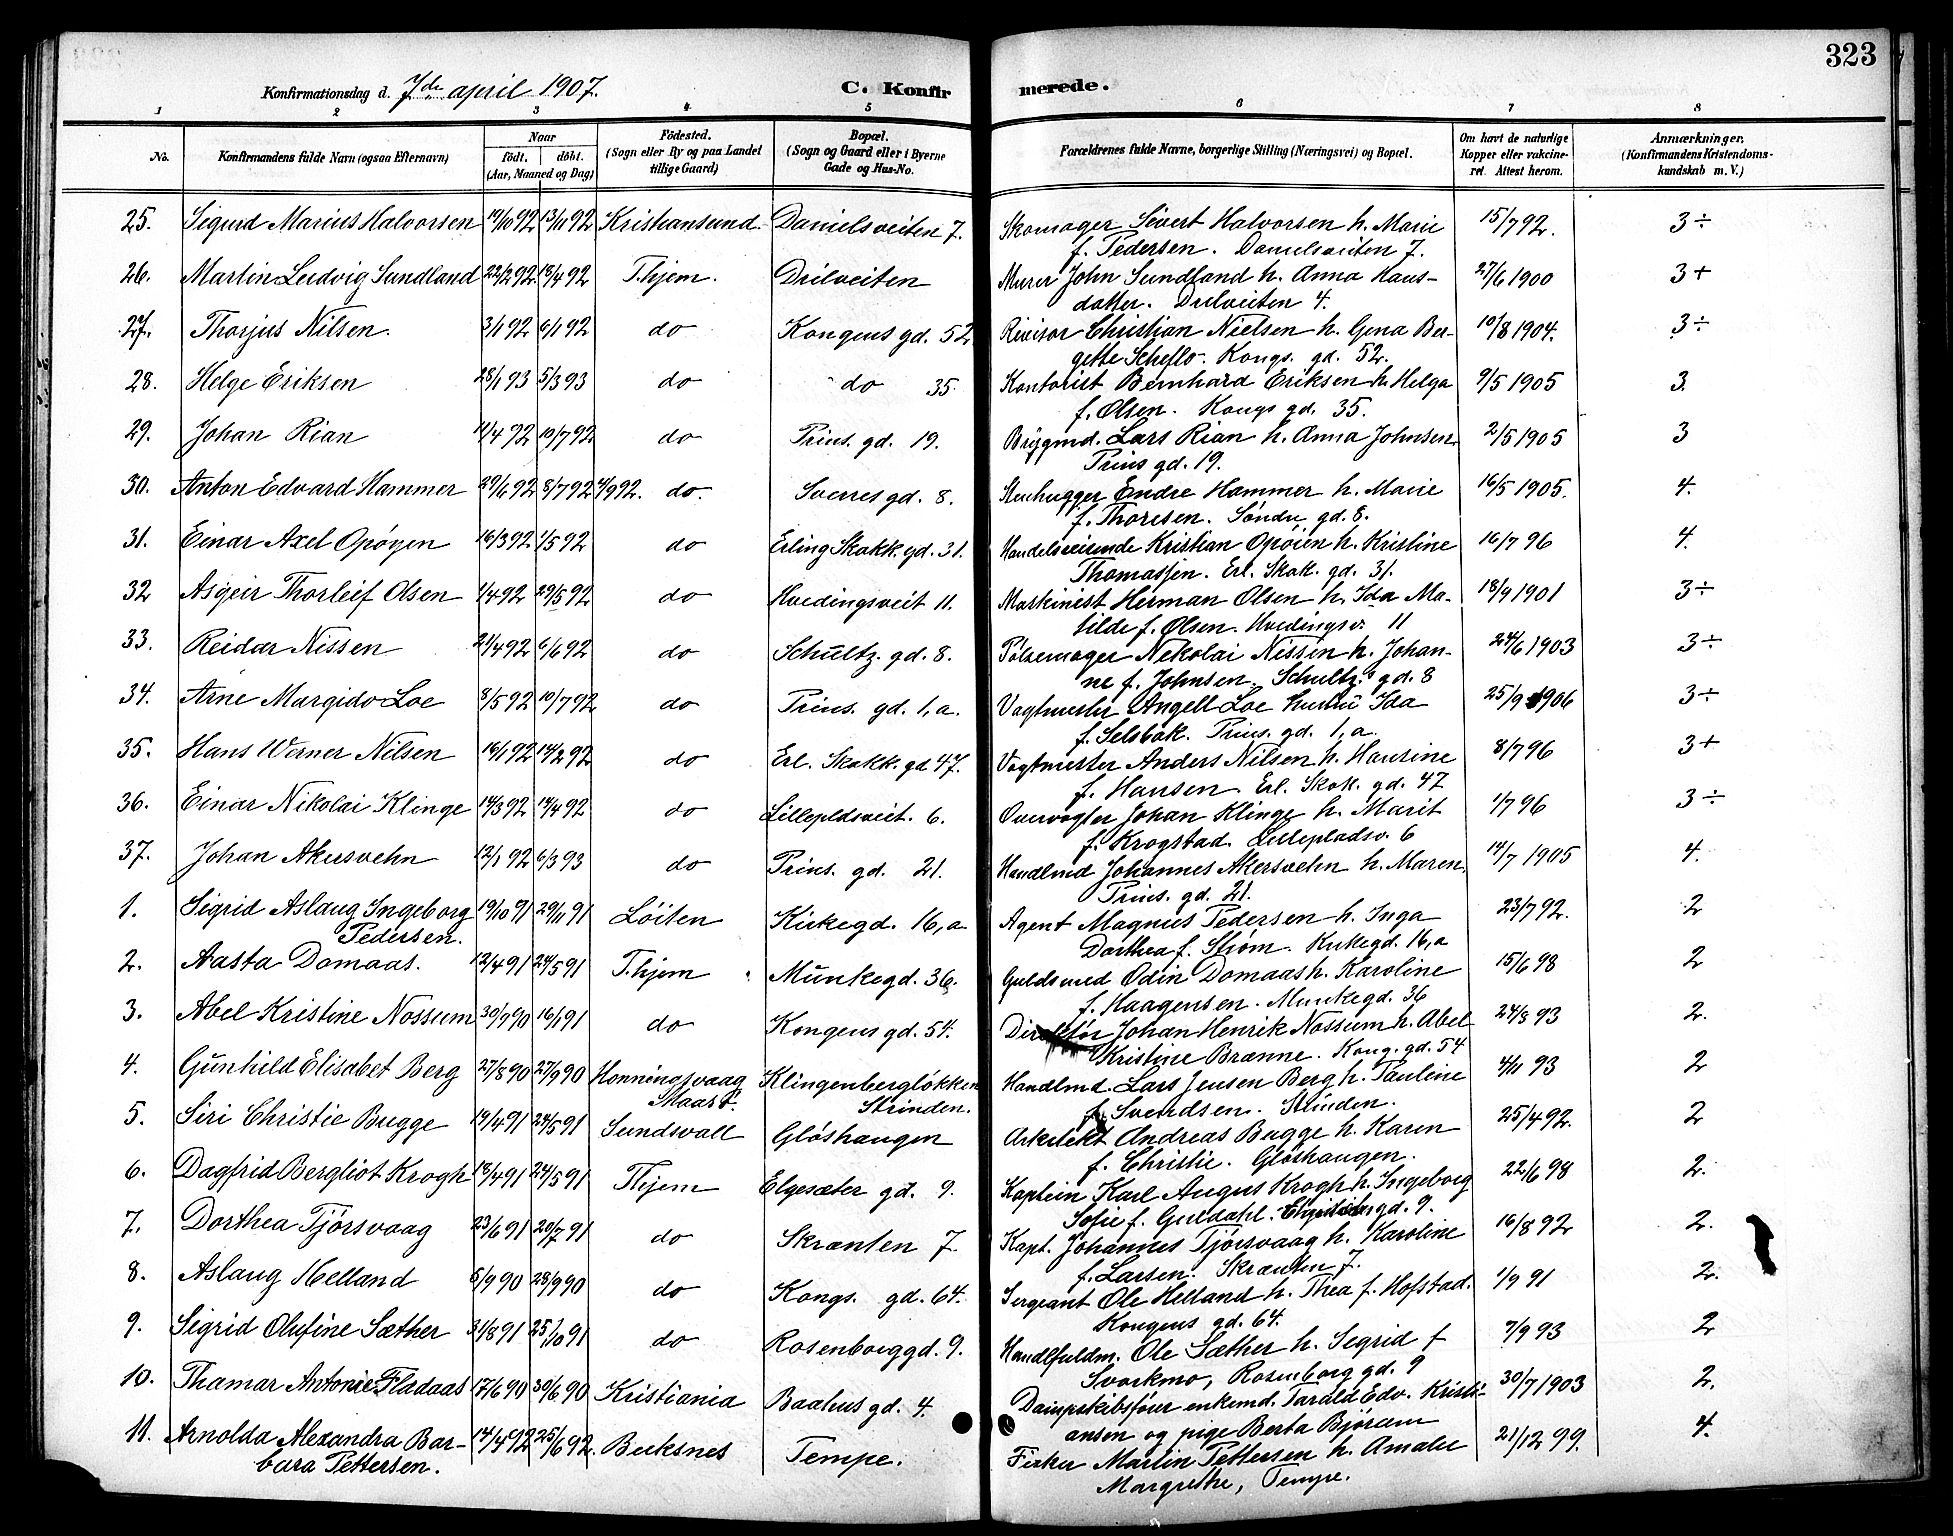 323
Konfirmationsdag d. 7de april 1907.
C. Konfirmerede.
1 2 3 4 5 6 7 8
No. Konfirmandens fulde Navn (ogsaa Efternavn) Naar født. døbt. (Aar, Maaned og Dag) Fødested. (Sogn eller By og paa Landet tillige Gaard) Bopæl. (Sogn og Gaard eller i Byerne Gade og Hus-No. Forældrenes fulde Navne, borgerlige Stilling (Næringsvei) og Bopæl. Om havt de naturlige Kopper eller vakcineret. Attest herom. Anmærkninger, (Konfirmandens Kristendomskundskab m. V.)
25. Sigurd Marius Halvorsen 13/11 92 Kristiansund. Danielsveiten 7. Skomager Sivert Halvorsen h. Marie 15/7 92. 3÷
f. Pedersen. Danielsveiten 7.
26. Martin Ludvig Sundland 22/2 92 18/4 92 T.hjem. Drilveiten Murer John Sundland h. Anna Hans- 27/6 1900 3+
datter. Drilveiten 4.
27. Thorjus Nilsen. 3/1 92 6/1 92 do Kongens gd. 52 Revisor Christian Nielsen h. Gena Ber- 10/8 1904. 3÷
gette Scheflo. Kongs. gd. 52.
28. Helge Eriksen 28/1 93 5/3 93 do do 35. Kontorist Bernhard Eriksen h. Helga 9/5 1905 3.
f. Olsen. Kongs gd. 35.
29. Johan Rian 11/4 92 10/7 92 do Prins. gd. 19. Bryggmd. Lars Rian h. Anna Johnsen. 2/5 1905 3
Prins gd. 19.
30. Anton Edvard Hammer 29/6 92 8/7 92 4/9 92. do. Sverres gd. 8. Stenhugger Endre Hammer h. Marie 16/5 1905. 4.
f. Thoresen. Søndre gd. 8.
31. Einar Axel Opøyen 16/3 92 1/5 92 do Erling Skakk. gd. 31. Handelsreisende Kristian Opøien h. Kristine 16/7 96 4.
Thomassen. Erl. Skak. gd. 31.
32 Asgeir Thorleif Olsen 1/4 92 29/5 92 do Hvedingsveit 11. Maskinist Herman Olsen h. Ida Ma- 18/9 1901 3÷
tilde f. Olsen. Hvedingsv. 11
33. Reidar Nissen 21/4 92 6/6 92 do Schultz. gd. 8. Pølsemager Nikolai Nissen h. Johan- 24/6 1903 3÷
ne f. Johnsen. Schultz.s gd. 8
34. Arne Margido Loe 8/5 92 10/7 92 do Prins. gd. 1,a. Vagtmester Angell Loe hustru Ida 25/9 1906 3÷
f. Selsbak. Prins. gd. 1,a.
35. Hans Werner Nilsen 16/1 92 14/2 92 do Erl. Skakk. gd 47. Vagtmester Anders Nilsen h. Hansine 8/7 96 3+
f. Hansen. Erl. Skak. gd. 47
36. Einar Nikolai Klinge 14/3 92 14/4 92 do Lillepldsveit. 6. Overvogter Johan Klinge h. Marit 1/7 96 3÷
f. Krogstad. Lillepladsv. 6
37. Johan Akersvehn 12/1 92 6/3 93 do Prins. gd. 21. Handlmd Johannes Akersvehn h. Maren. 14/7 1905 4.
Prins. gd. 21.
1. Sigrid Aslaug Ingeborg 19/10 91 29/11 91 Løiten Kirkegd. 16,a Agent Magnus Pedersen h. Inga 23/7 92. 2
Pedersen. Dorthea f. Strøm. Kirkegd. 16,a
2. Aasta Domaas. 12/4 91 24/5 91 T.hjem Munkegd. 36. Guldsmed Odin Domaas h. Karoline 15/6 98 2
f. Haagensen. Munkegd. 36
3. Abel Kristine Nossum 30/7 90 16/1 91 do Kongens gd. 54. Direktør Johan Henrik Nossum h. Abel 24/8 93 2.
Kristine Brænne. Kong. gd. 54
4. Gunhild Elisabet Berg 27/8 90 27/9 90 Honningsvaag Klingenbergløkken Handlmd. Lars Jensen Berg h. Pauline 4/11 93 2
Maasø. Strinden. f. Svendsen. Strinden.
5. Siri Christie Bugge 19/4 91 24/5 91 Sundsvall Gløshaugen Arkitekt Andreas Bugge h. Karen 25/4 92. 2
f. Christie. Gløshaugen.
6. Dagfrid Bergliot Krogh 18/4 91 24/5 91 T.hjem Elgesæter gd. 9. Kaptein Karl August Krogh h. Ingeborg 22/6 98 2.
Sofie f. Guldahl. Elgesæter gd. 9.
7. Dorthea Tjørsvaag 23/6 91 20/7 91 do Skrænten 7. Kapt. Johannes Tjørsvaag h. Karoline 16/8 92 2.
f. Larsen. Skrænten 7.
8. Aslaug Helland 5/9 90 28/9 90 do Kongs. gd. 64. Sergeant Ole Helland h. Thea f. Hofstad. 1/9 91 2.
Kongens gd. 64.
9. Sigrid Olufine Sæther 31/8 91 25/10 91 do Rosenborggd. 9. Handlfuldm. Ole Sæther h. Sigrid f 7/9 93 2
Svorkmo, Rosenborg gd. 9
10. Thamar Antonie Fladaas 17/6 90 30/6 90 Kristiania Baahus gd. 4. Dampskibsfører enkemd. Tarald Edv. Kristi- 30/7 1903 2.
ansen og pige Berta Bjøram
11. Arnolda Alexandra Bar- 14/4 92 25/6 92. Buksnes Tempe. Fisker Martin Pettersen h. Amalie 21/12 99. 4.
bara Pettersen. Margrethe, Tempe.